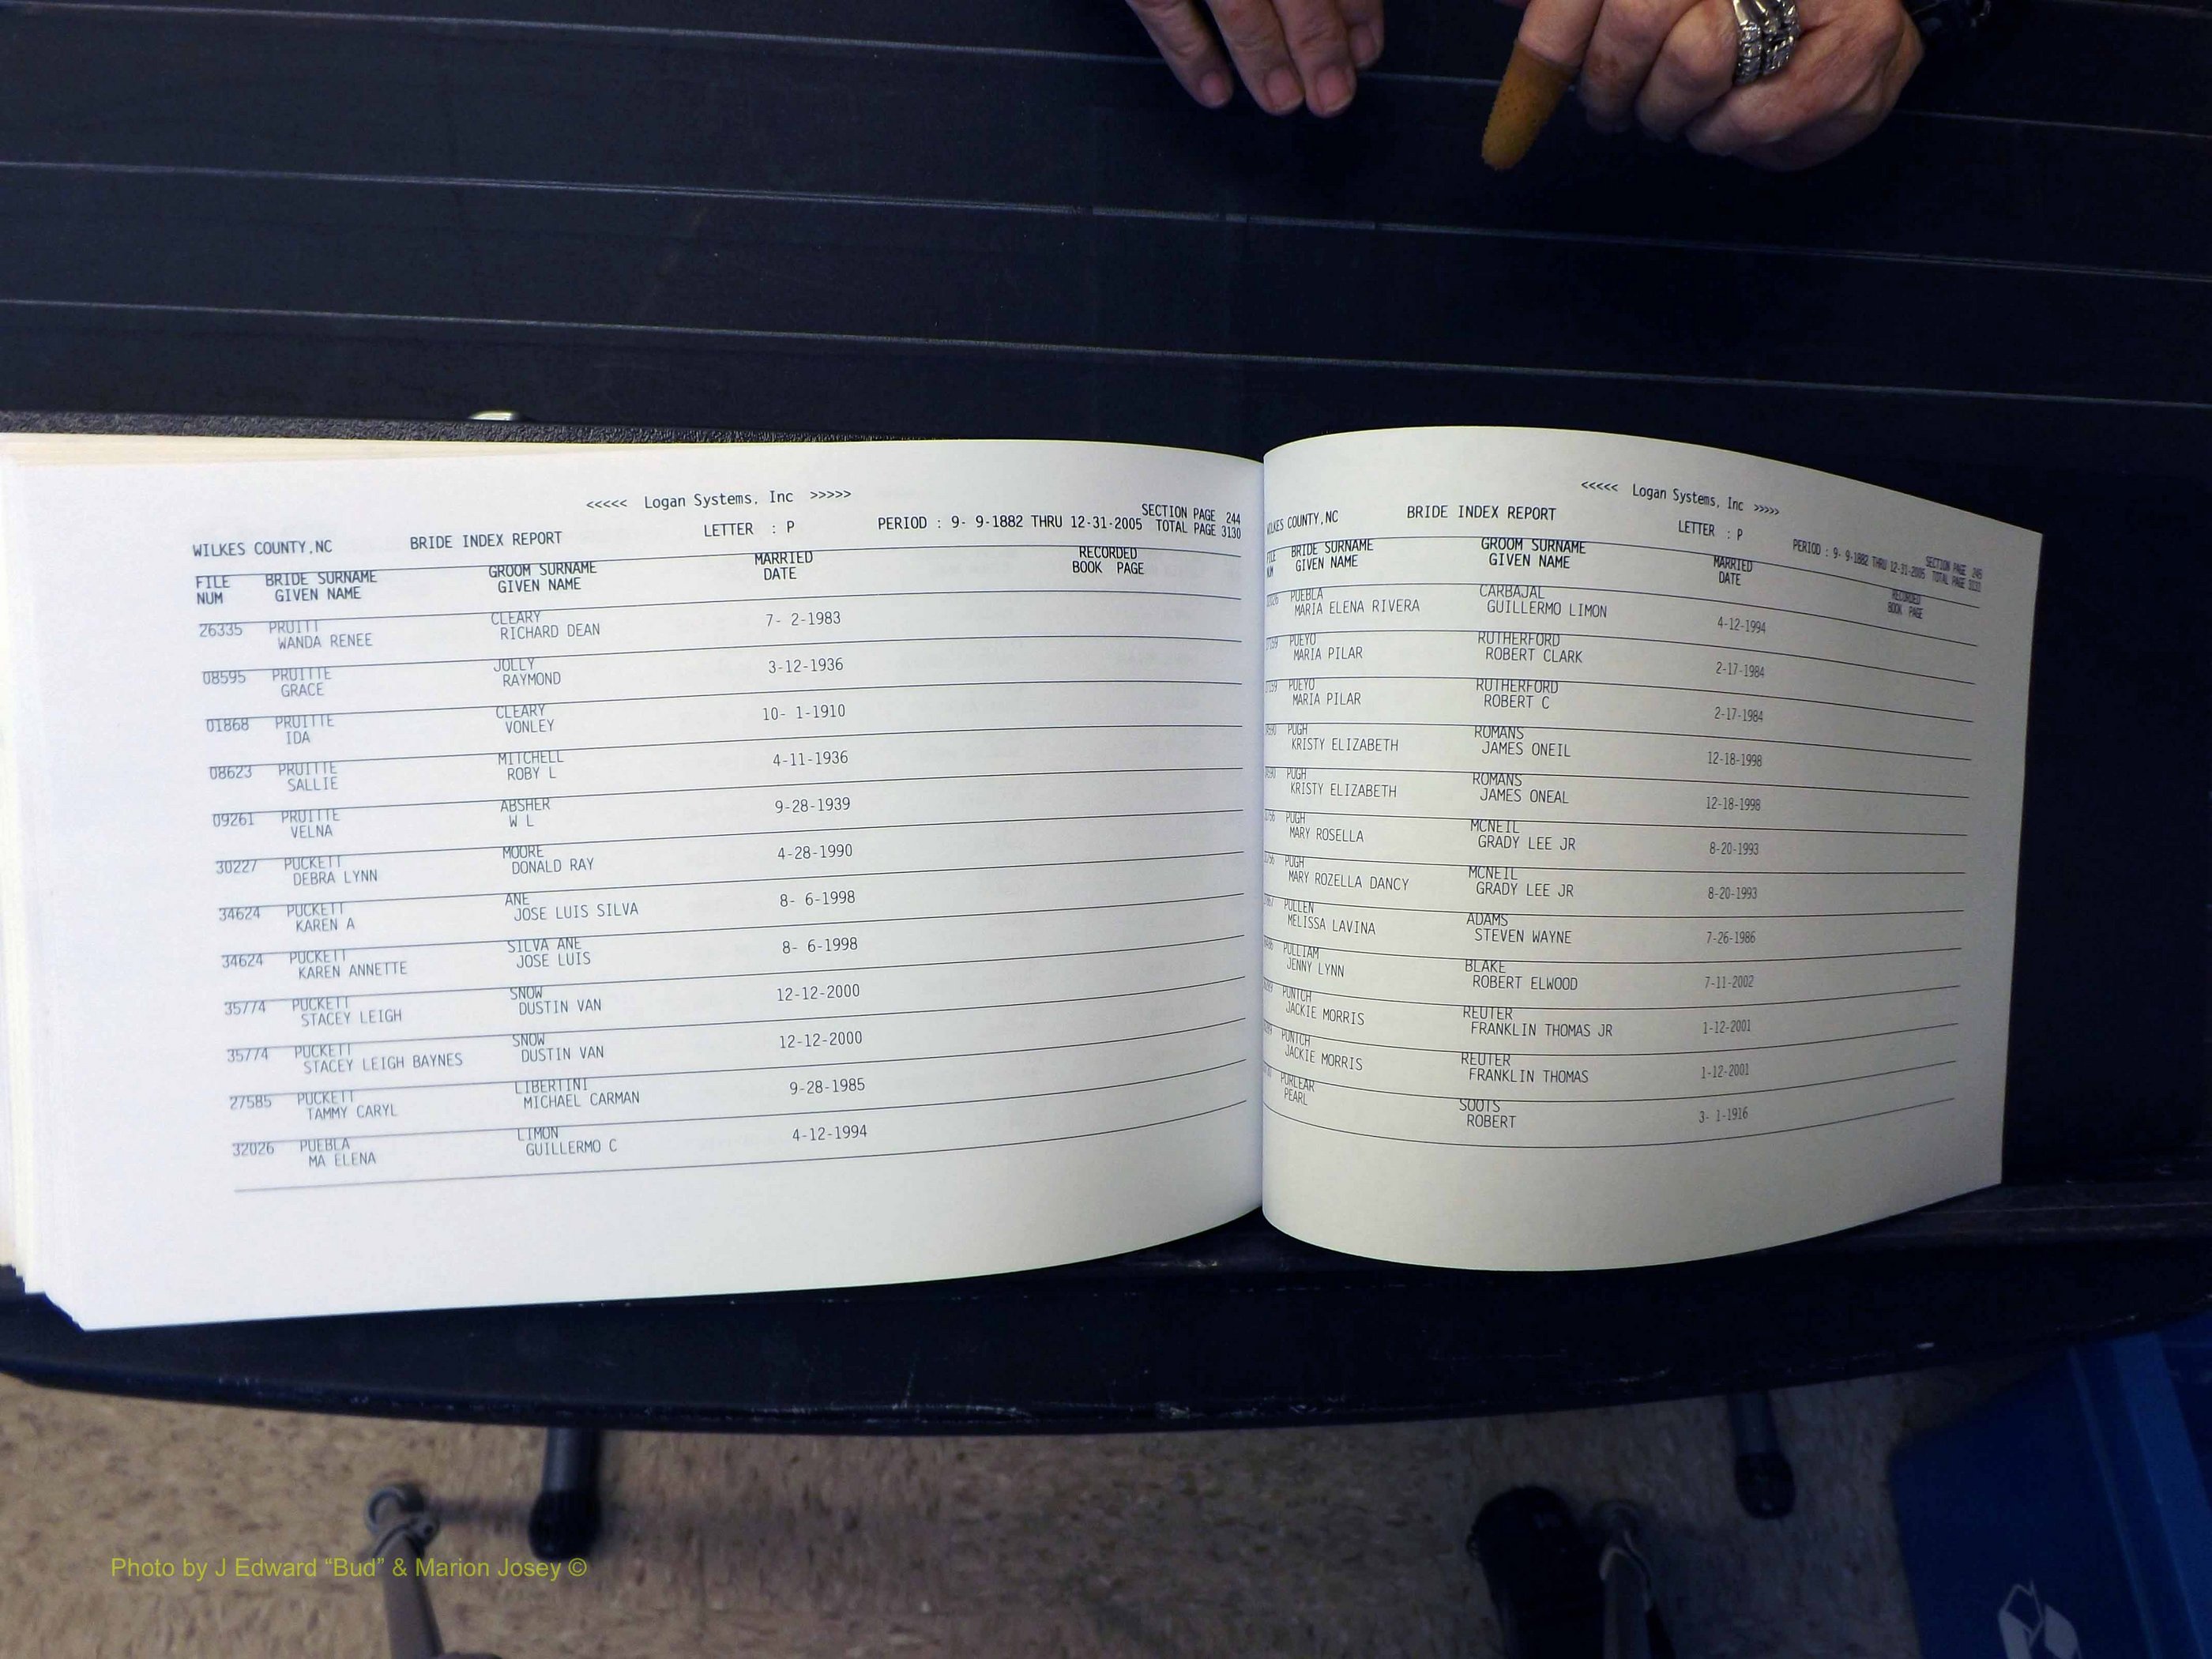 <<<<< Logan Systems, Inc >>>>>
SECTION PAGE 244
WILKES COUNTY,NC BRIDE INDEX REPORT LETTER : P PERIOD : 9- 9-1882 THRU 12-31-2005 TOTAL PAGE 3130
FILE BRIDE SURNAME GROOM SURNAME MARRIED RECORDED
NUM GIVEN NAME GIVEN NAME DATE BOOK PAGE
26335 PRUITT CLEARY 7- 2-1983
WANDA RENEE RICHARD DEAN
08595 PRUITTE JOLLY 3-12-1936
GRACE RAYMOND
01868 PRUITTE CLEARY 10- 1-1910
IDA VONLEY
08623 PRUITTE MITCHELL 4-11-1936
SALLIE ROBY L
09261 PRUITTE ABSHER 9-28-1939
VELNA W L
30227 PUCKETT MOORE 4-28-1990
DEBRA LYNN DONALD RAY
34624 PUCKETT ANE 8- 6-1998
KAREN A JOSE LUIS SILVA
34624 PUCKETT SILVA ANE 8- 6-1998
KAREN ANNETTE JOSE LUIS
35774 PUCKETT SNOW 12-12-2000
STACEY LEIGH DUSTIN VAN
35774 PUCKETT SNOW 12-12-2000
STACEY LEIGH BAYNES DUSTIN VAN
27585 PUCKETT LIBERTINI 9-28-1985
TAMMY CARYL MICHAEL CARMAN
32026 PUEBLA LIMON 4-12-1994
MA ELENA GUILLERMO C
<<<<< Logan Systems, Inc >>>>>
SECTION PAGE 245
WILKES COUNTY,NC BRIDE INDEX REPORT LETTER : P PERIOD : 9- 9-1882 THRU 12-31-2005 TOTAL PAGE 3130
FILE BRIDE SURNAME GROOM SURNAME MARRIED RECORDED
NUM GIVEN NAME GIVEN NAME DATE BOOK PAGE
PUEBLA CARBAJAL 4-12-1994
MARIA ELENA RIVERA GUILLERMO LIMON
PUEYO RUTHERFORD 2-17-1984
MARIA PILAR ROBERT CLARK
PUEYO RUTHERFORD 2-17-1984
MARIA PILAR ROBERT C
PUGH ROMANS 12-18-1998
KRISTY ELIZABETH JAMES ONEIL
PUGH ROMANS 12-18-1998
KRISTY ELIZABETH JAMES ONEAL
PUGH MCNEIL 8-20-1993
MARY ROSELLA GRADY LEE JR
PUGH MCNEIL 8-20-1993
MARY ROZELLA DANCY GRADY LEE JR
PULLEN ADAMS 7-26-1986
MELISSA LAVINA STEVEN WAYNE
PULLIAM BLAKE 7-11-2002
JENNY LYNN ROBERT ELWOOD
PUNTCH REUTER 1-12-2001
JACKIE MORRIS FRANKLIN THOMAS JR
PUNTCH REUTER 1-12-2001
JACKIE MORRIS FRANKLIN THOMAS
PURLEAR SOOTS 3- 1-1916
PEARL ROBERT
Photo by J Edward “Bud” & Marion Josey ©